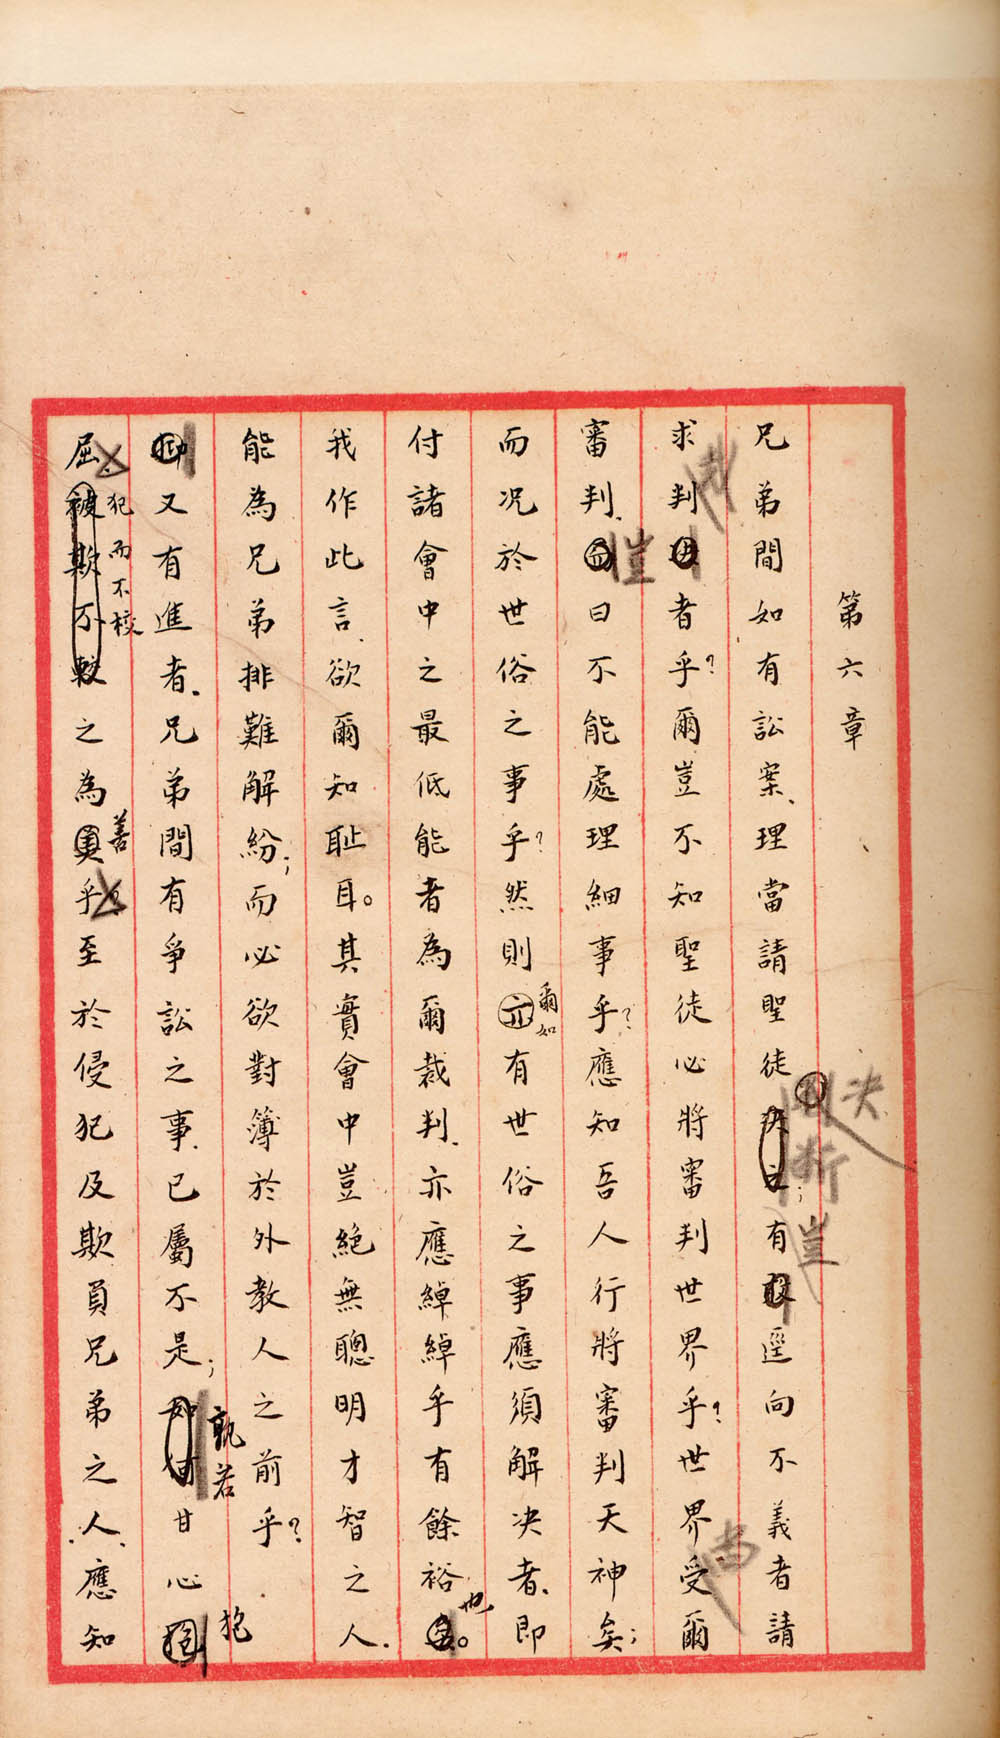 第六章
兄弟間如有訟案、理當請聖徒決之；有敢逕向不義者請
決
斷
豈
求判者乎？爾豈不知聖徒必將審判世界乎？世界受爾
尚
審判、而曰不能處理細事乎？應知吾人行將審判天神矣；
豈
而況於世俗之事乎？然則亦有世俗之事應須解決者、即
爾如
付諸會中之最低能者為爾裁判、亦應綽綽乎有餘裕。
也
我作此言、欲爾知恥耳。其實會中豈絕無聰明才智之人、
能為兄弟排難解紛；而必欲對簿於外教人之前乎？
抑又有進者、兄弟間有爭訟之事、已屬不是；如何甘心抱
孰若
抱
屈、被欺不較之為美乎至於侵犯及欺負兄弟之人、應知
犯而不校
善